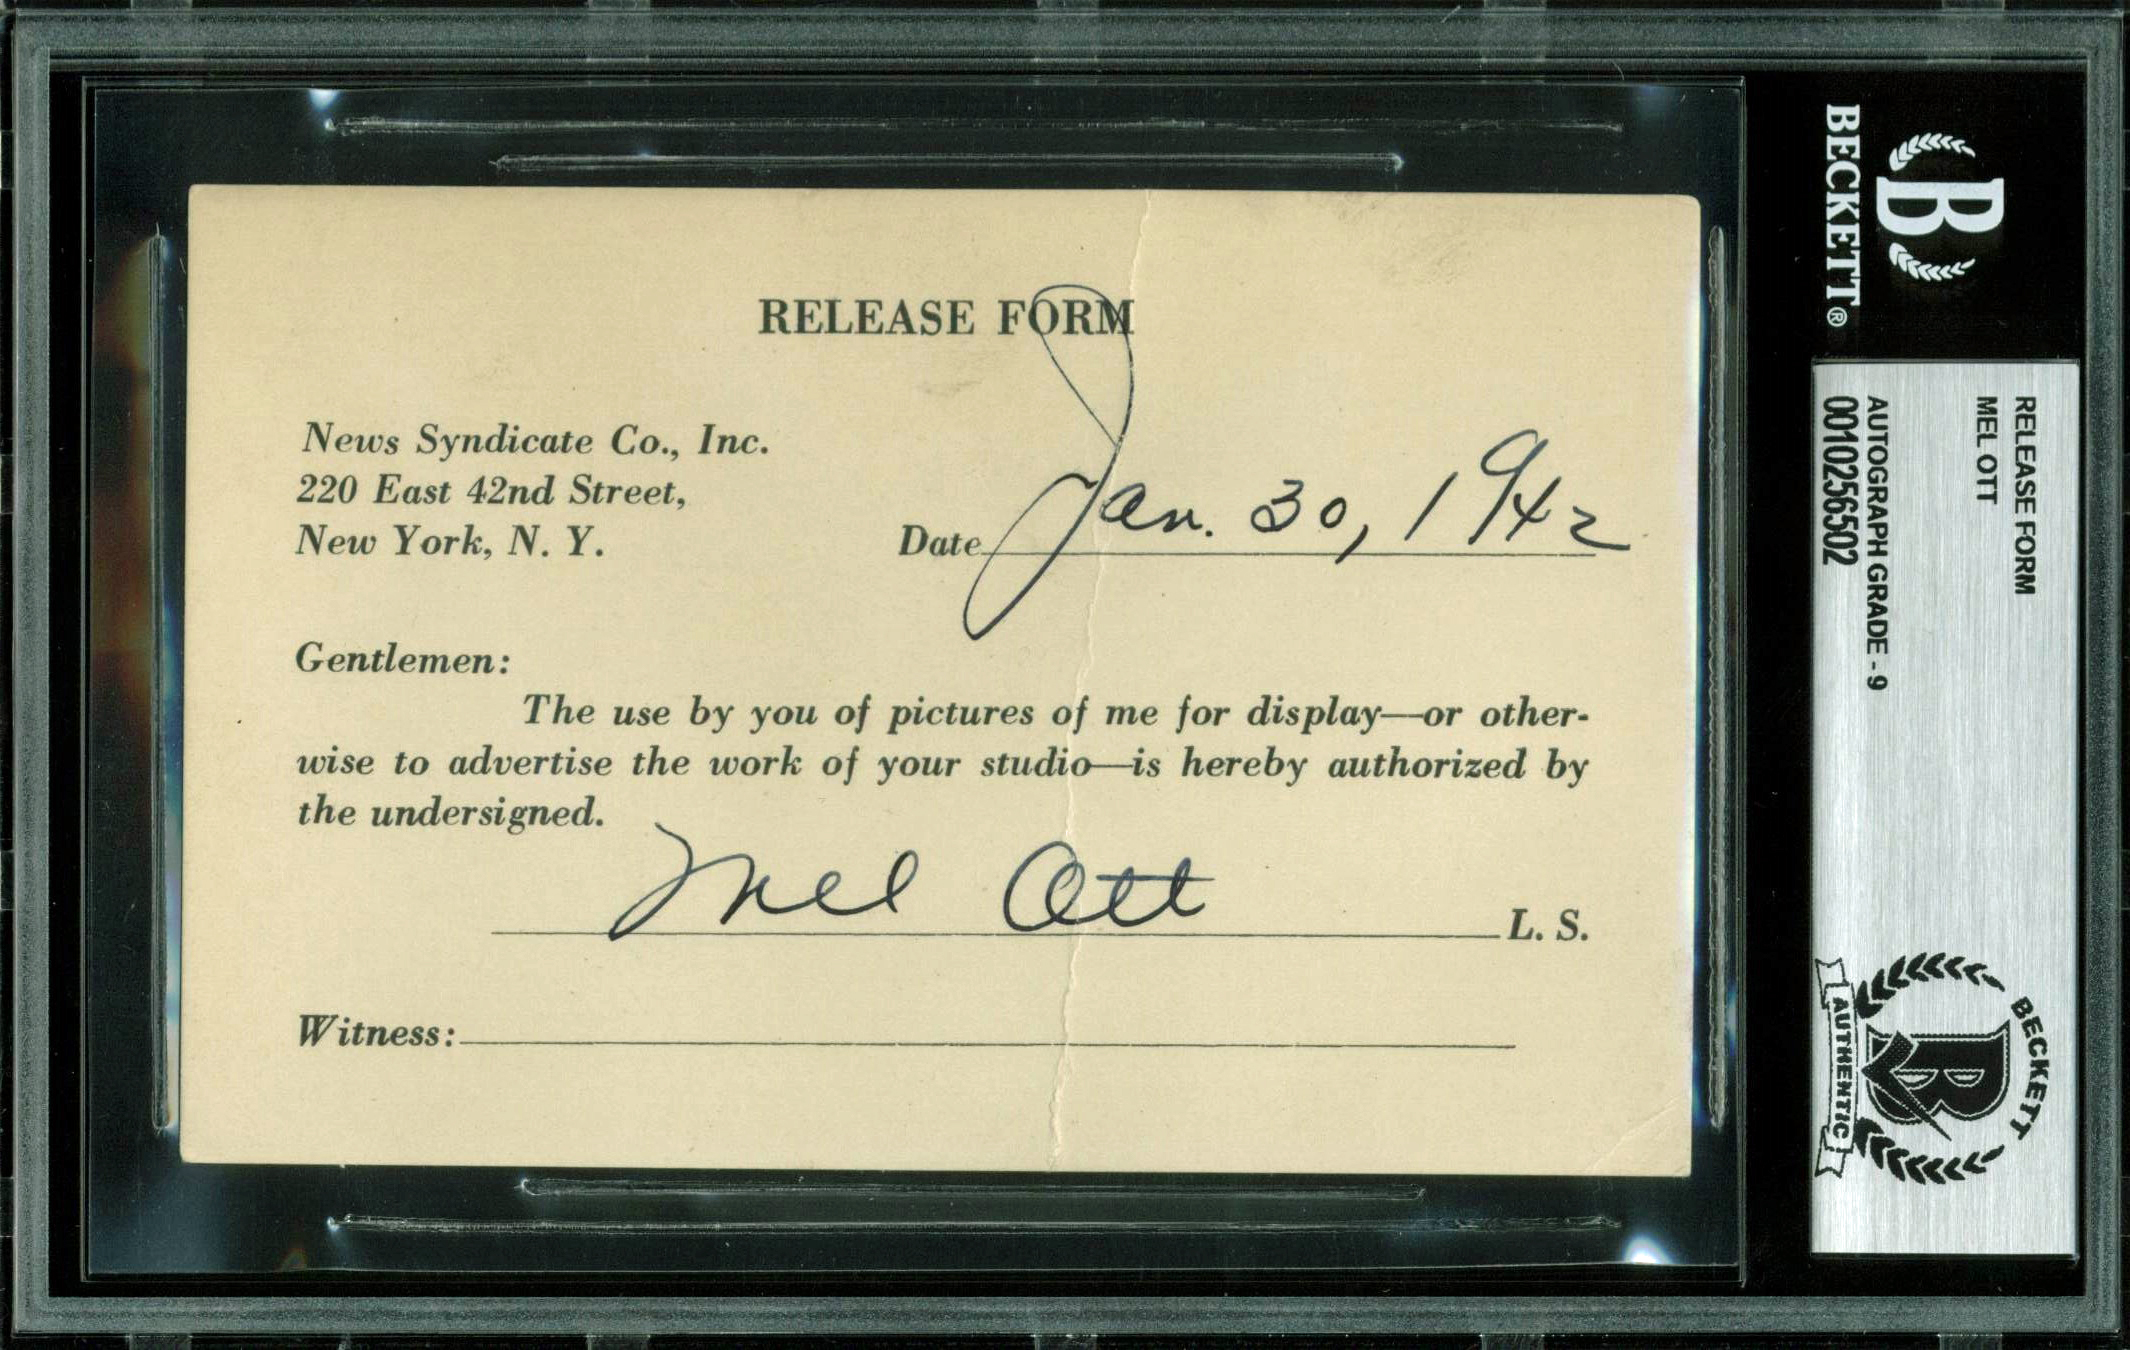 RELEASE FORM
News Syndicate Co., Inc.
220 East 42nd Street,
New York, N. Y.
Date Jan. 30, 1942
Gentlemen:
The use by you of pictures of me for display—or other-
wise to advertise the work of your studio—is hereby authorized by
the undersigned.
Mel Ott L. S.
Witness:
B
BECKETT®
RELEASE FORM
MEL OTT
AUTOGRAPH GRADE - 9
0010256502
BECKETT
B
AUTHENTIC